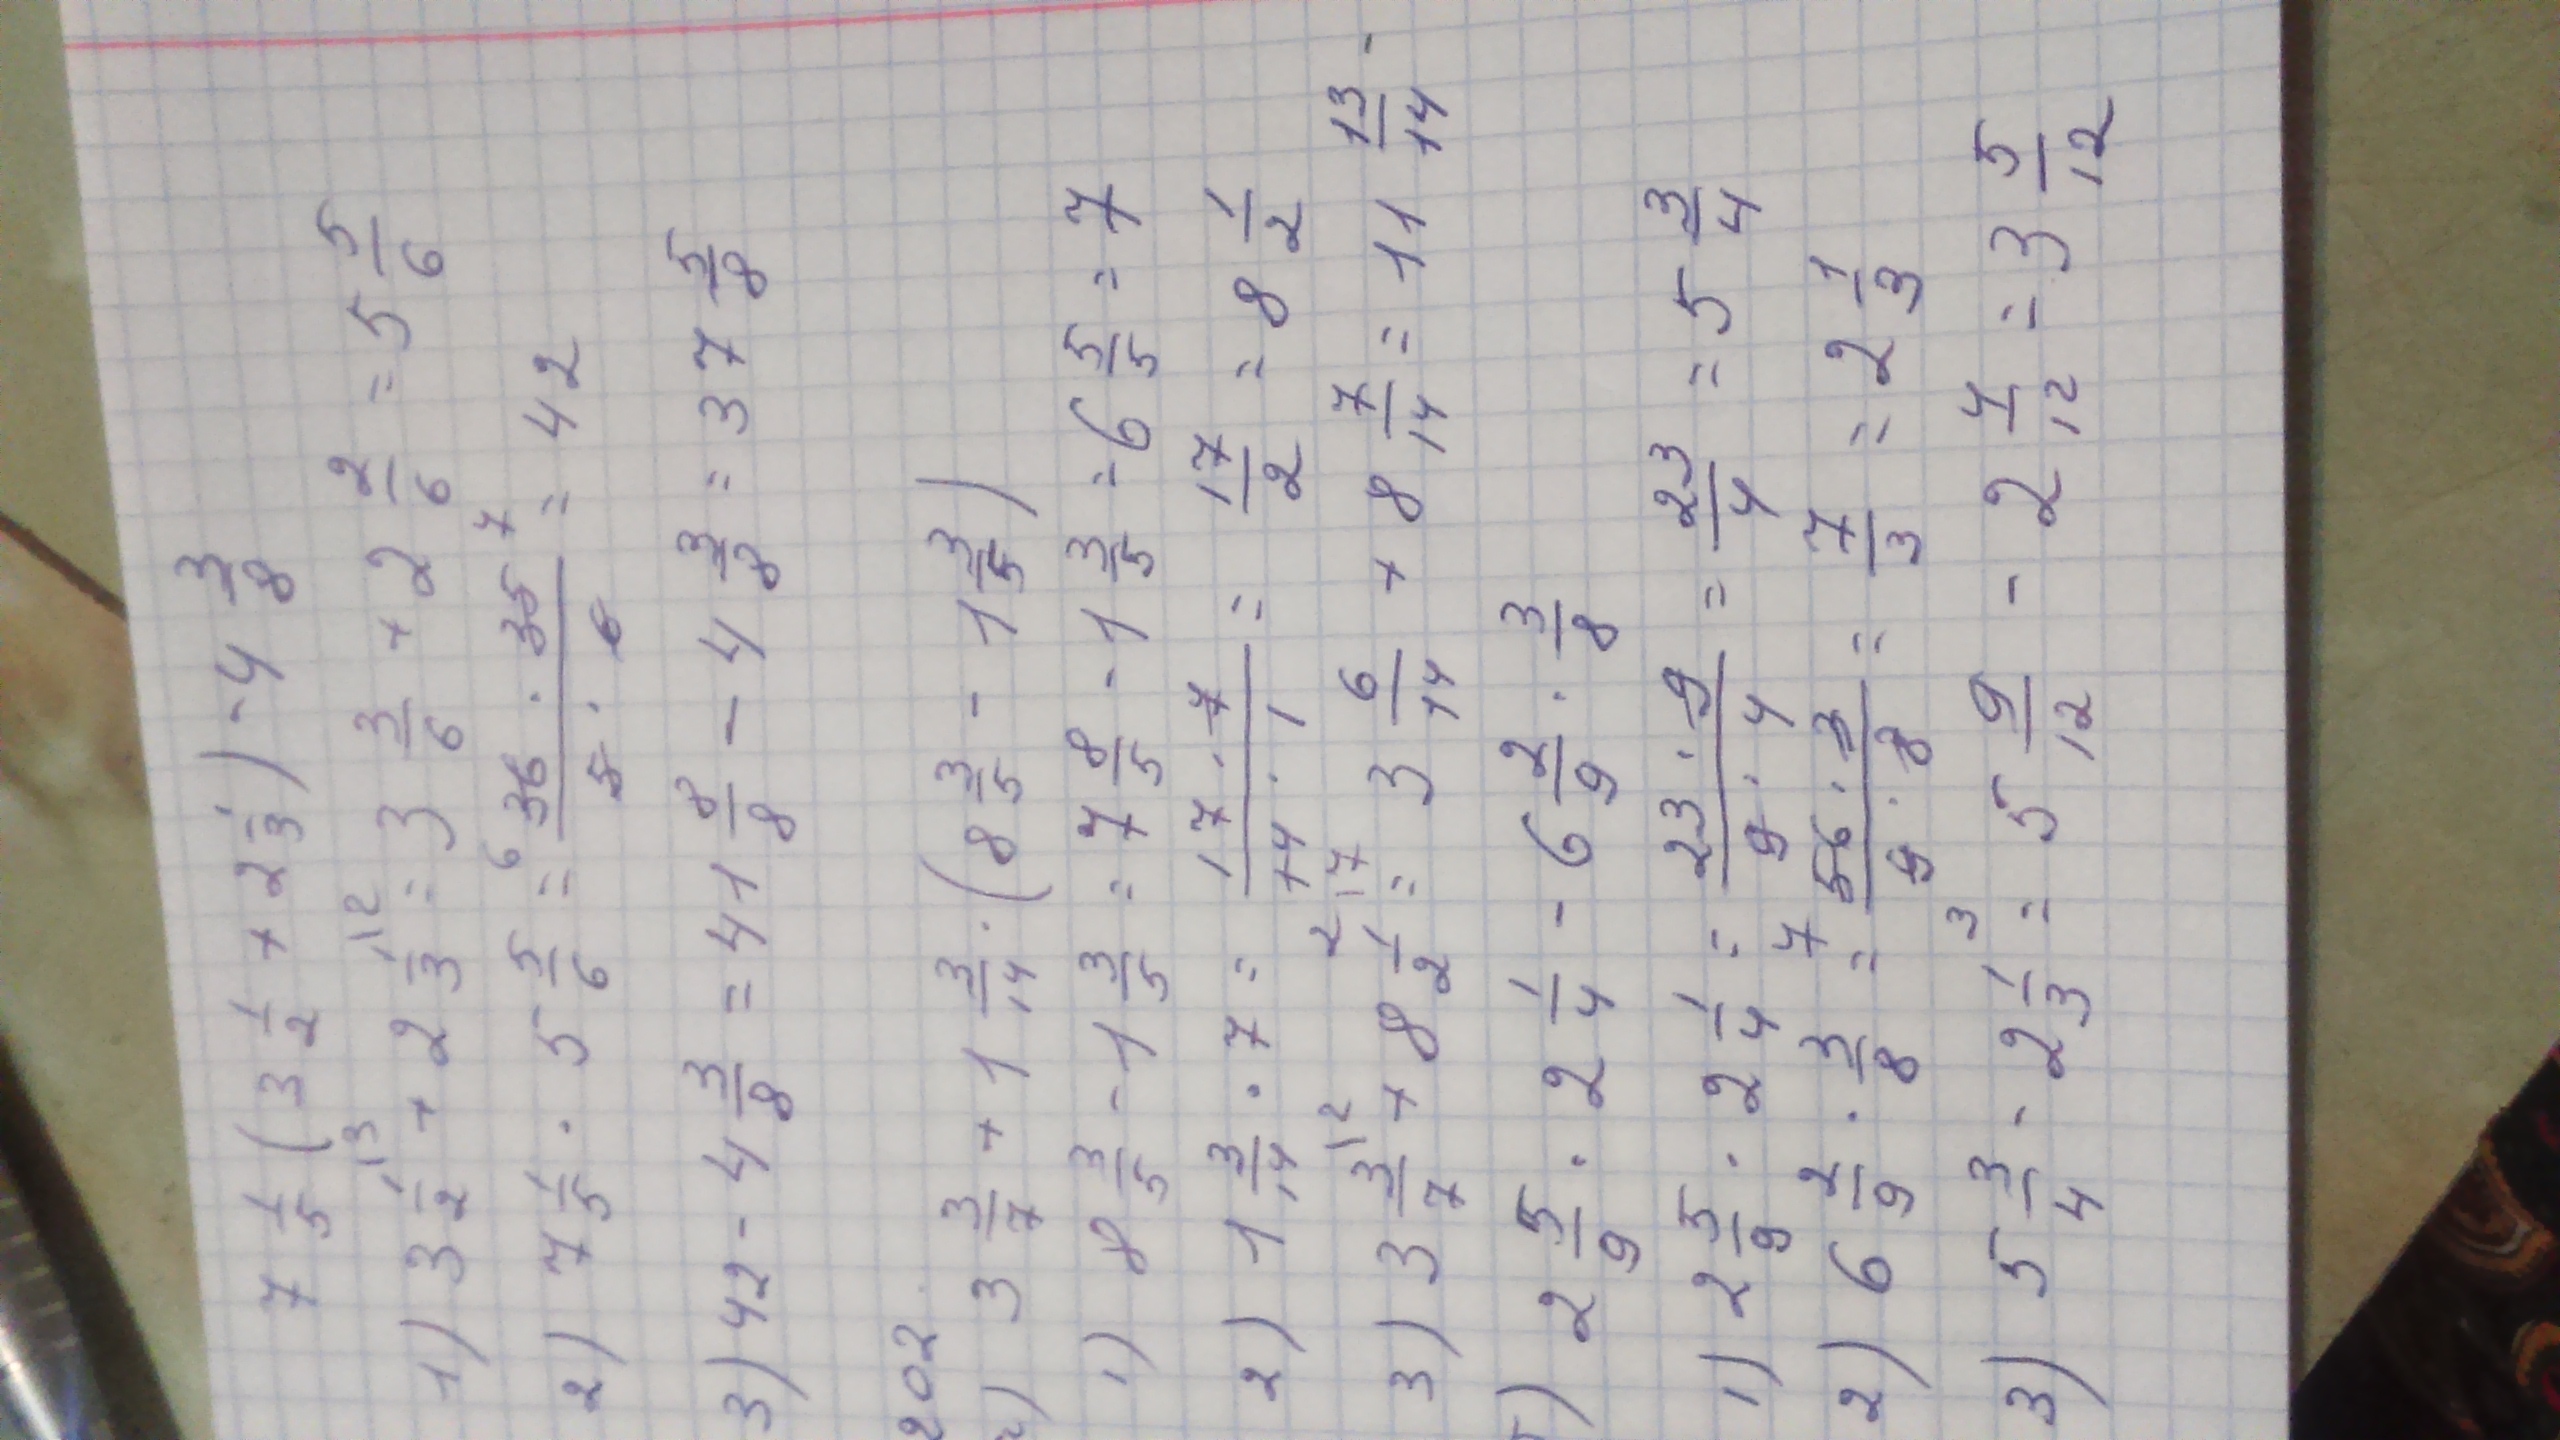 7 1/5 (3 1/2 + 2 1/3) - 4 3/8
1) 3 1/2 \3 + 2 1/3 \2 = 3 3/6 + 2 2/6 = 5 5/6
2) 7 1/5 · 5 5/6 = 6 36 · 35 7 / 5 · 6 = 42
3) 42 - 4 3/8 = 41 8/8 - 4 3/8 = 37 5/8
202
) 3 3/7 + 1 3/14 · (8 3/5 - 1 3/5)
1) 8 3/5 - 1 3/5 = 7 8/5 - 1 3/5 = 6 5/5 = 7
2) 1 3/14 · 7 = 17 · 7 / 14 · 1 = 17/2 = 8 1/2
3) 3 3/7 \2 + 8 1/2 \7 = 3 6/14 + 8 7/14 = 11 13/14
) 2 5/9 · 2 1/4 - 6 2/9 · 3/8
1) 2 5/9 · 2 1/4 = 23 · 9 / 9 · 4 = 23/4 = 5 3/4
2) 6 2/9 · 3/8 = 7 56 · 3 / 9 · 8 = 7/3 = 2 1/3
3) 5 3/4 - 2 1/3 = 5 9/12 - 2 4/12 = 3 5/12